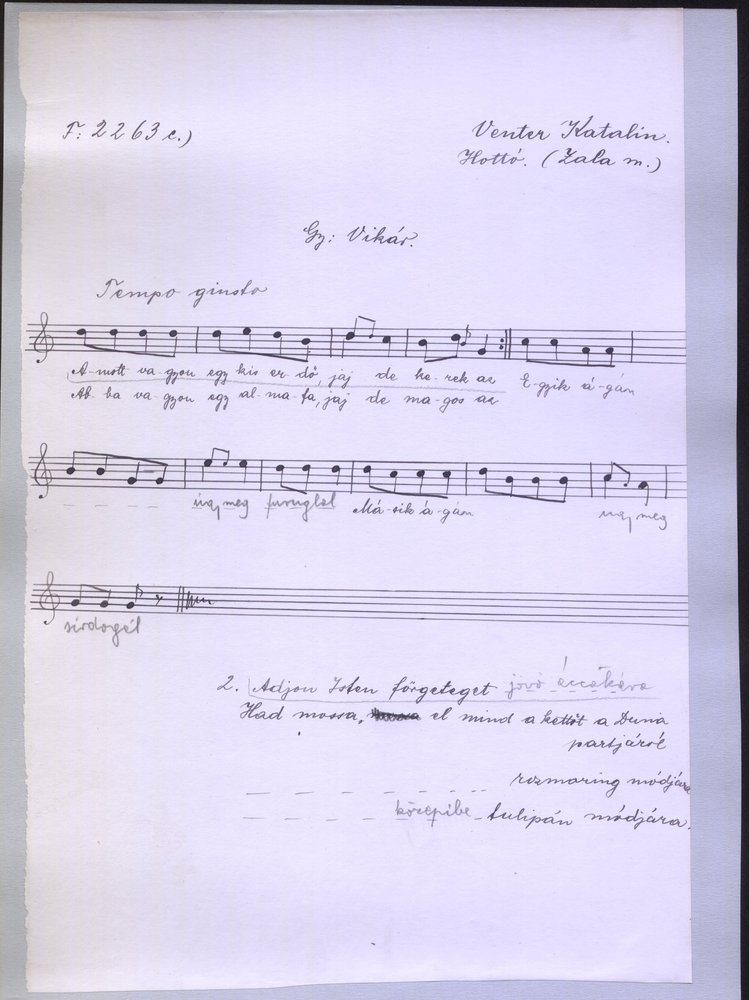 F: 2263 c.)
Venter Katalin.
Hottó. (Zala m.)
Gy: Vikár.
Tempo giusto
A-mott va-gyon egy kis er-dő, jaj de ke-rek az E-gyik á-gán
Ab-ba va-gyon egy al-ma-fa, jaj de ma-gos az
meg furuglal Má-sik á-gán meg
sirdogél
2. Adjon Isten förgeteget jövő éccakára
Had mossa, el mind a kettőt a Duna
partjáról
rozmaring módjára
közepibe tulipán módjára.